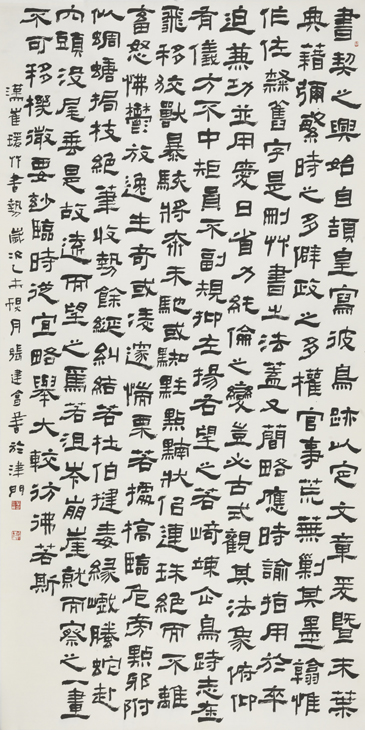 書契之興始自頡皇寫彼鳥跡以定文章爰暨末葉
典籍彌繁時之多僻政之多權官事荒蕪剿其墨翰惟
作佐隸舊字是刪艸書之法蓋又簡略應時諭指用於卒
迫兼功並用愛日省力純倫之變豈必古式觀其法象俯仰
有儀方不中矩員不副規抑左揚右望之若崎竦企鳥跱志在
飛移狡獸暴駭將奔未馳或點狀似連珠絕而不離
畜怒怫鬱放逸生奇或淩邃惴栗若據槁臨危旁點邪附
似蜩螗挶枝絕筆收勢餘綖糾結若杜伯揵毒緣巇螣蛇赴
穴頭沒尾垂是故遠而望之焉若沮岑崩崖就而察之一畫
不可移機微要妙臨時從宜略舉大較彷彿若斯
漢崔瑗作書勢歲次乙未槐月張建會書於津門